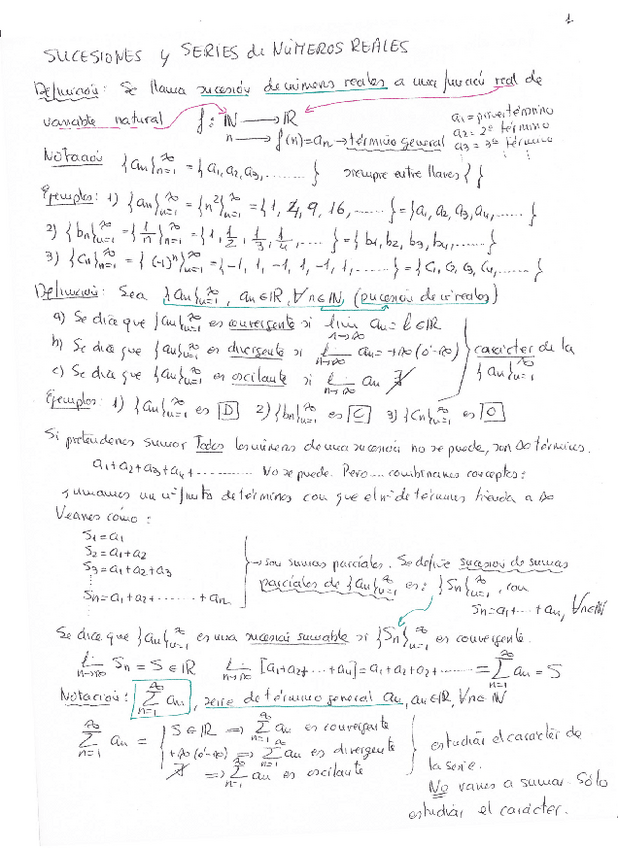 1
SUCESIONES y SERIES de NÚMEROS REALES
Definición: Se llama sucesión de números reales a una función real de
variable natural f: ℕ ⟶ ℝ a₁ = primer término
n ⟶ f(n)=aₙ → término general a₂ = 2º término
a₃ = 3º término
Notación {aₙ}ₙ₌₁^∞ = {a₁, a₂, a₃, ........ } siempre entre llaves { }
Ejemplos: 1) {aₙ}ₙ₌₁^∞ = {n²}ₙ₌₁^∞ = {1, 4, 9, 16, ...... } = {a₁, a₂, a₃, a₄, ...... }
2) {bₙ}ₙ₌₁^∞ = {1/n}ₙ₌₁^∞ = {1, 1/2, 1/3, 1/4, .... } = {b₁, b₂, b₃, b₄, ...... }
3) {cₙ}ₙ₌₁^∞ = {(-1)ⁿ}ₙ₌₁^∞ = {-1, 1, -1, 1, -1, 1, ...... } = {c₁, c₂, c₃, c₄, ...... }
Definición: Sea {aₙ}ₙ₌₁^∞, aₙ∈ℝ, ∀n∈ℕ, (sucesión de nº reales)
a) Se dice que {aₙ}ₙ₌₁^∞ es convergente si lim n→∞ aₙ = l∈ℝ
b) Se dice que {aₙ}ₙ₌₁^∞ es divergente si l n→∞ aₙ = +∞ (ó -∞) carácter de la
c) Se dice que {aₙ}ₙ₌₁^∞ es oscilante si l n→∞ aₙ ∄ {aₙ}ₙ₌₁^∞
Ejemplos: 1) {aₙ}ₙ₌₁^∞ es D 2) {bₙ}ₙ₌₁^∞ es C 3) {cₙ}ₙ₌₁^∞ es O
Si pretendemos sumar Todos los números de una sucesión no se puede, son ∞ términos.
a₁+a₂+a₃+a₄+ .......... No se puede. Pero.... combinamos conceptos:
sumamos un nº finito de términos con que el nº de términos tienda a ∞
Veamos cómo:
S₁ = a₁
S₂ = a₁+a₂
S₃ = a₁+a₂+a₃ → son sumas parciales. Se define sucesión de sumas
parciales de {aₙ}ₙ₌₁^∞ es: {Sₙ}ₙ₌₁^∞, con
Sₙ = a₁+a₂+ ........ + aₙ Sₙ = a₁+ ... + aₙ, ∀n∈ℕ
Se dice que {aₙ}ₙ₌₁^∞ es una sucesión sumable si {Sₙ}ₙ₌₁^∞ es convergente.
l n→∞ Sₙ = S ∈ ℝ l n→∞ [a₁+a₂+ ... +aₙ] = a₁+a₂+a₃+ ...... = ∑ₙ₌₁^∞ aₙ = S
Notación: ∑ₙ₌₁^∞ aₙ, serie de término general aₙ, aₙ∈ℝ, ∀n∈ℕ
∑ₙ₌₁^∞ aₙ = { S∈ℝ ⟹ ∑ₙ₌₁^∞ aₙ es convergente
+∞ (ó -∞) ⟹ ∑ₙ₌₁^∞ aₙ es divergente
∄ ⟹ ∑ₙ₌₁^∞ aₙ es oscilante
estudiar el carácter de
la serie.
No vamos a sumar. Sólo
estudiar el carácter.